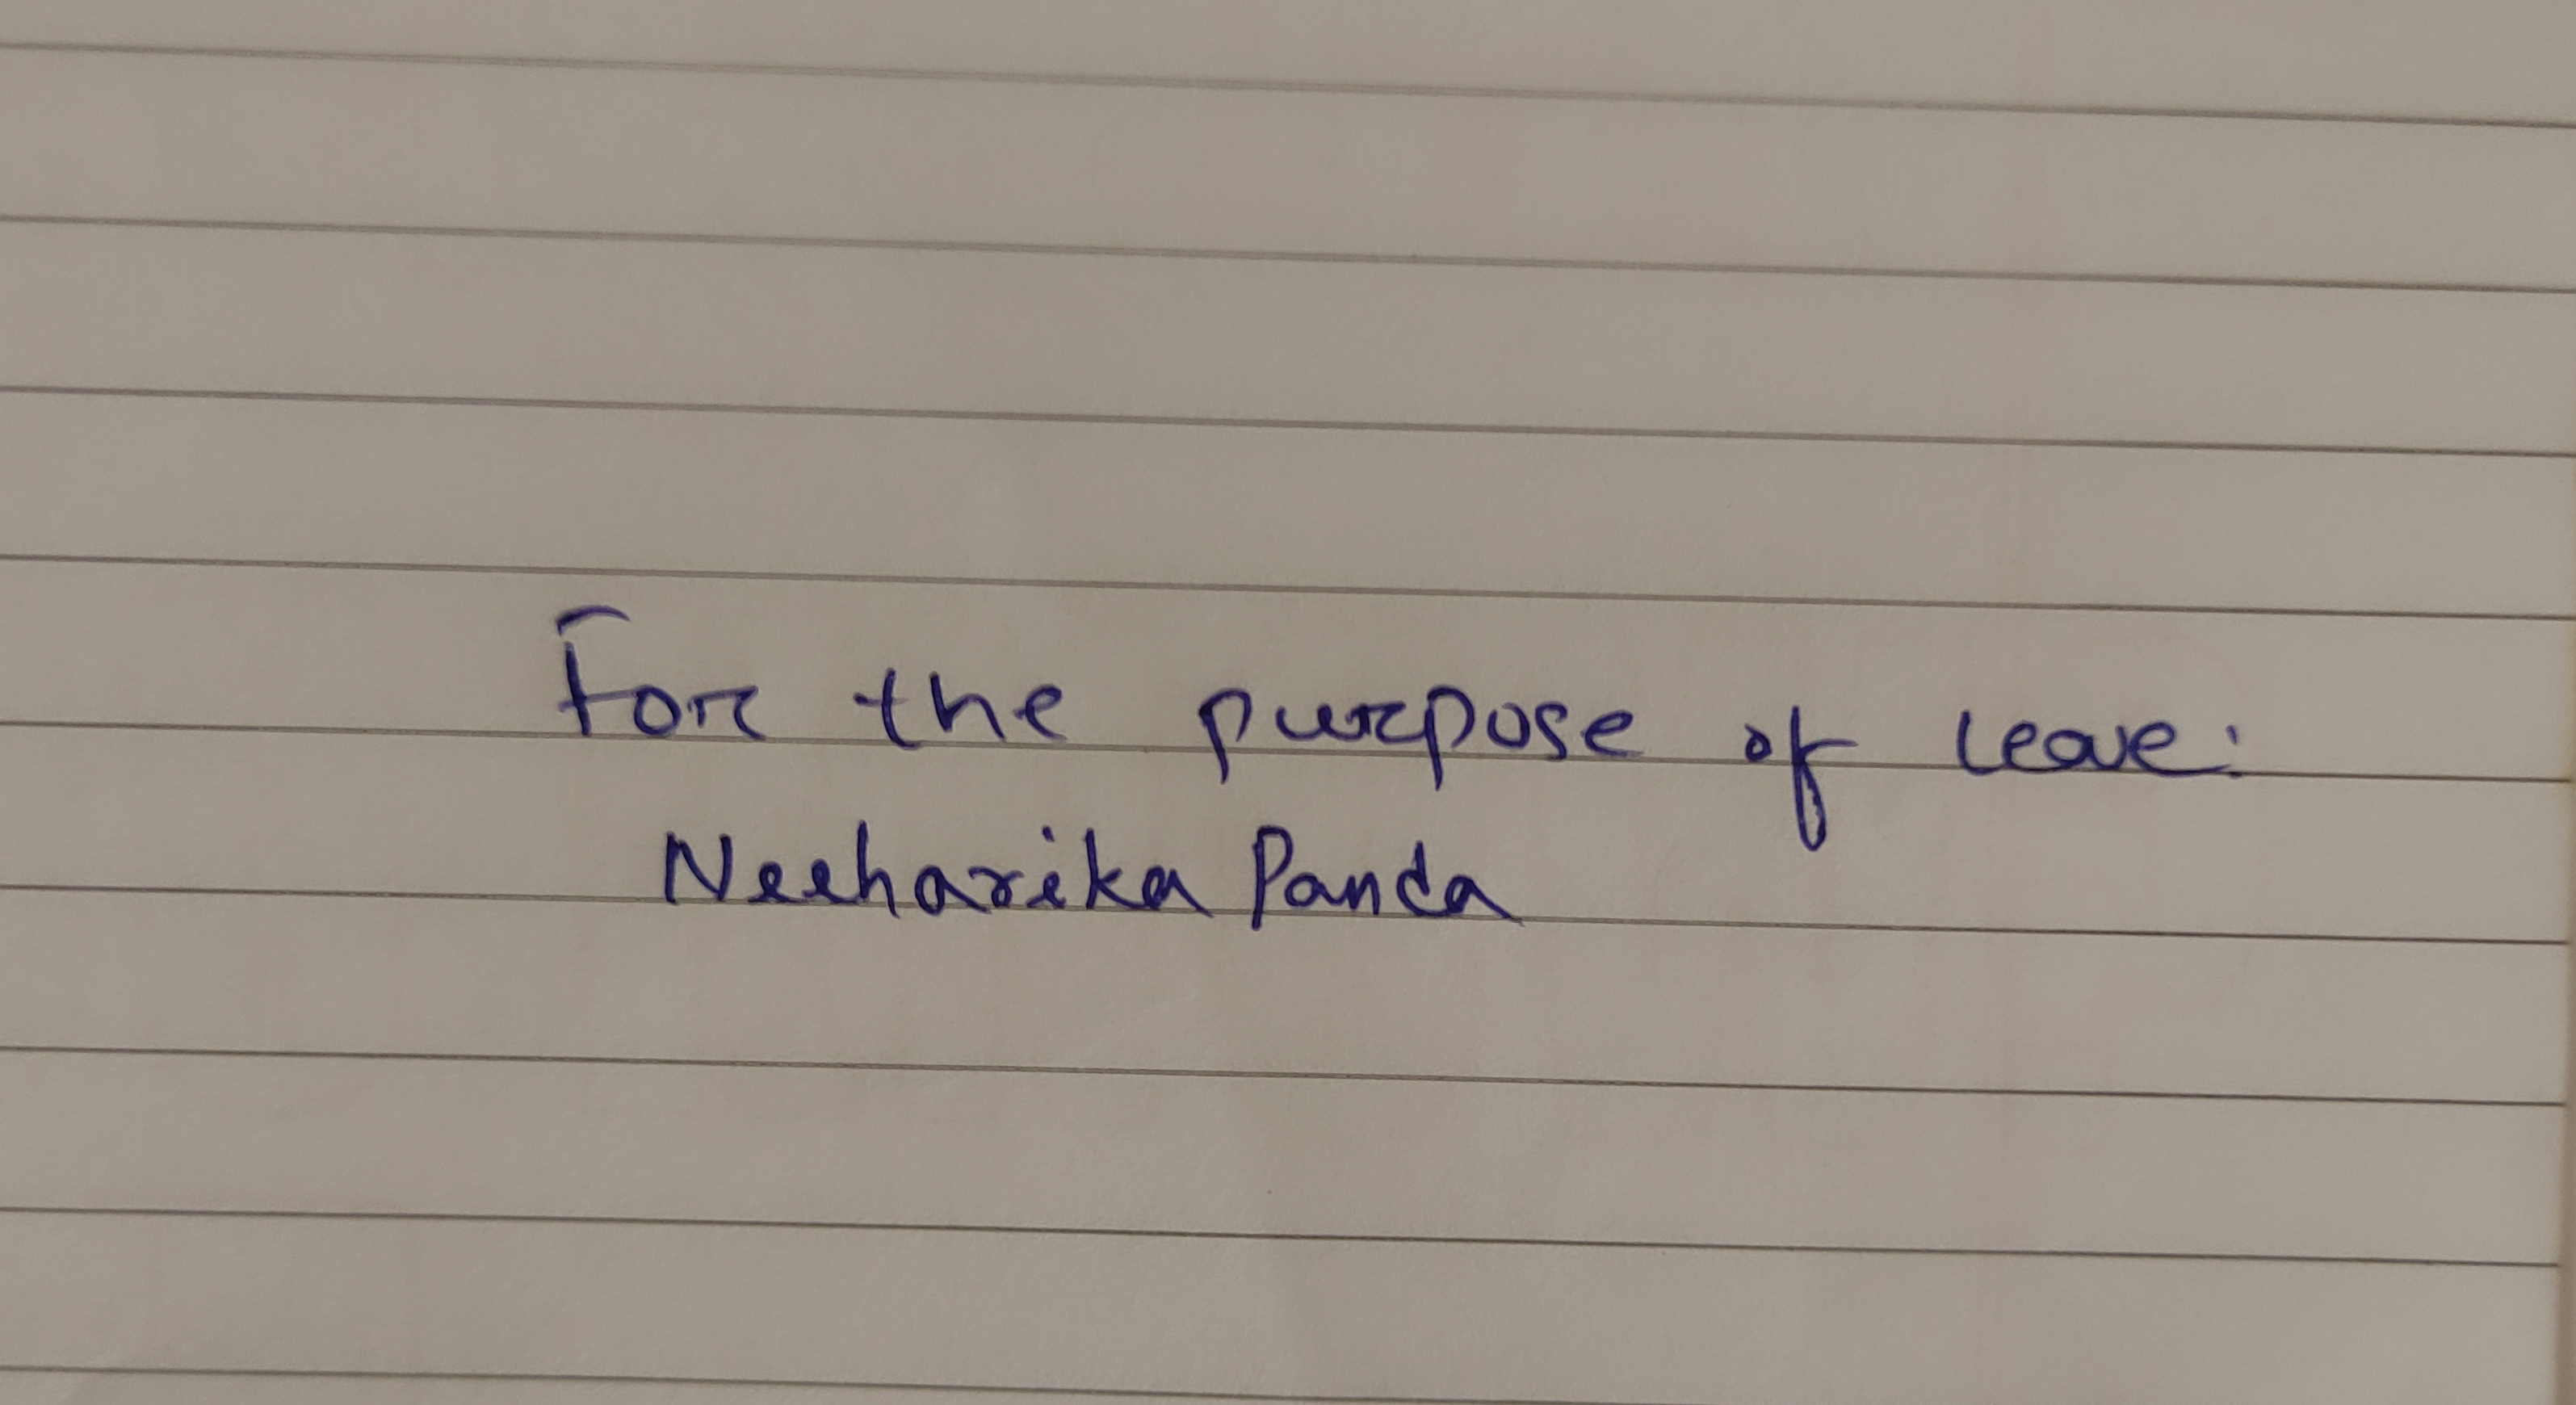 For the purpose of leave:
Neeharika Panda